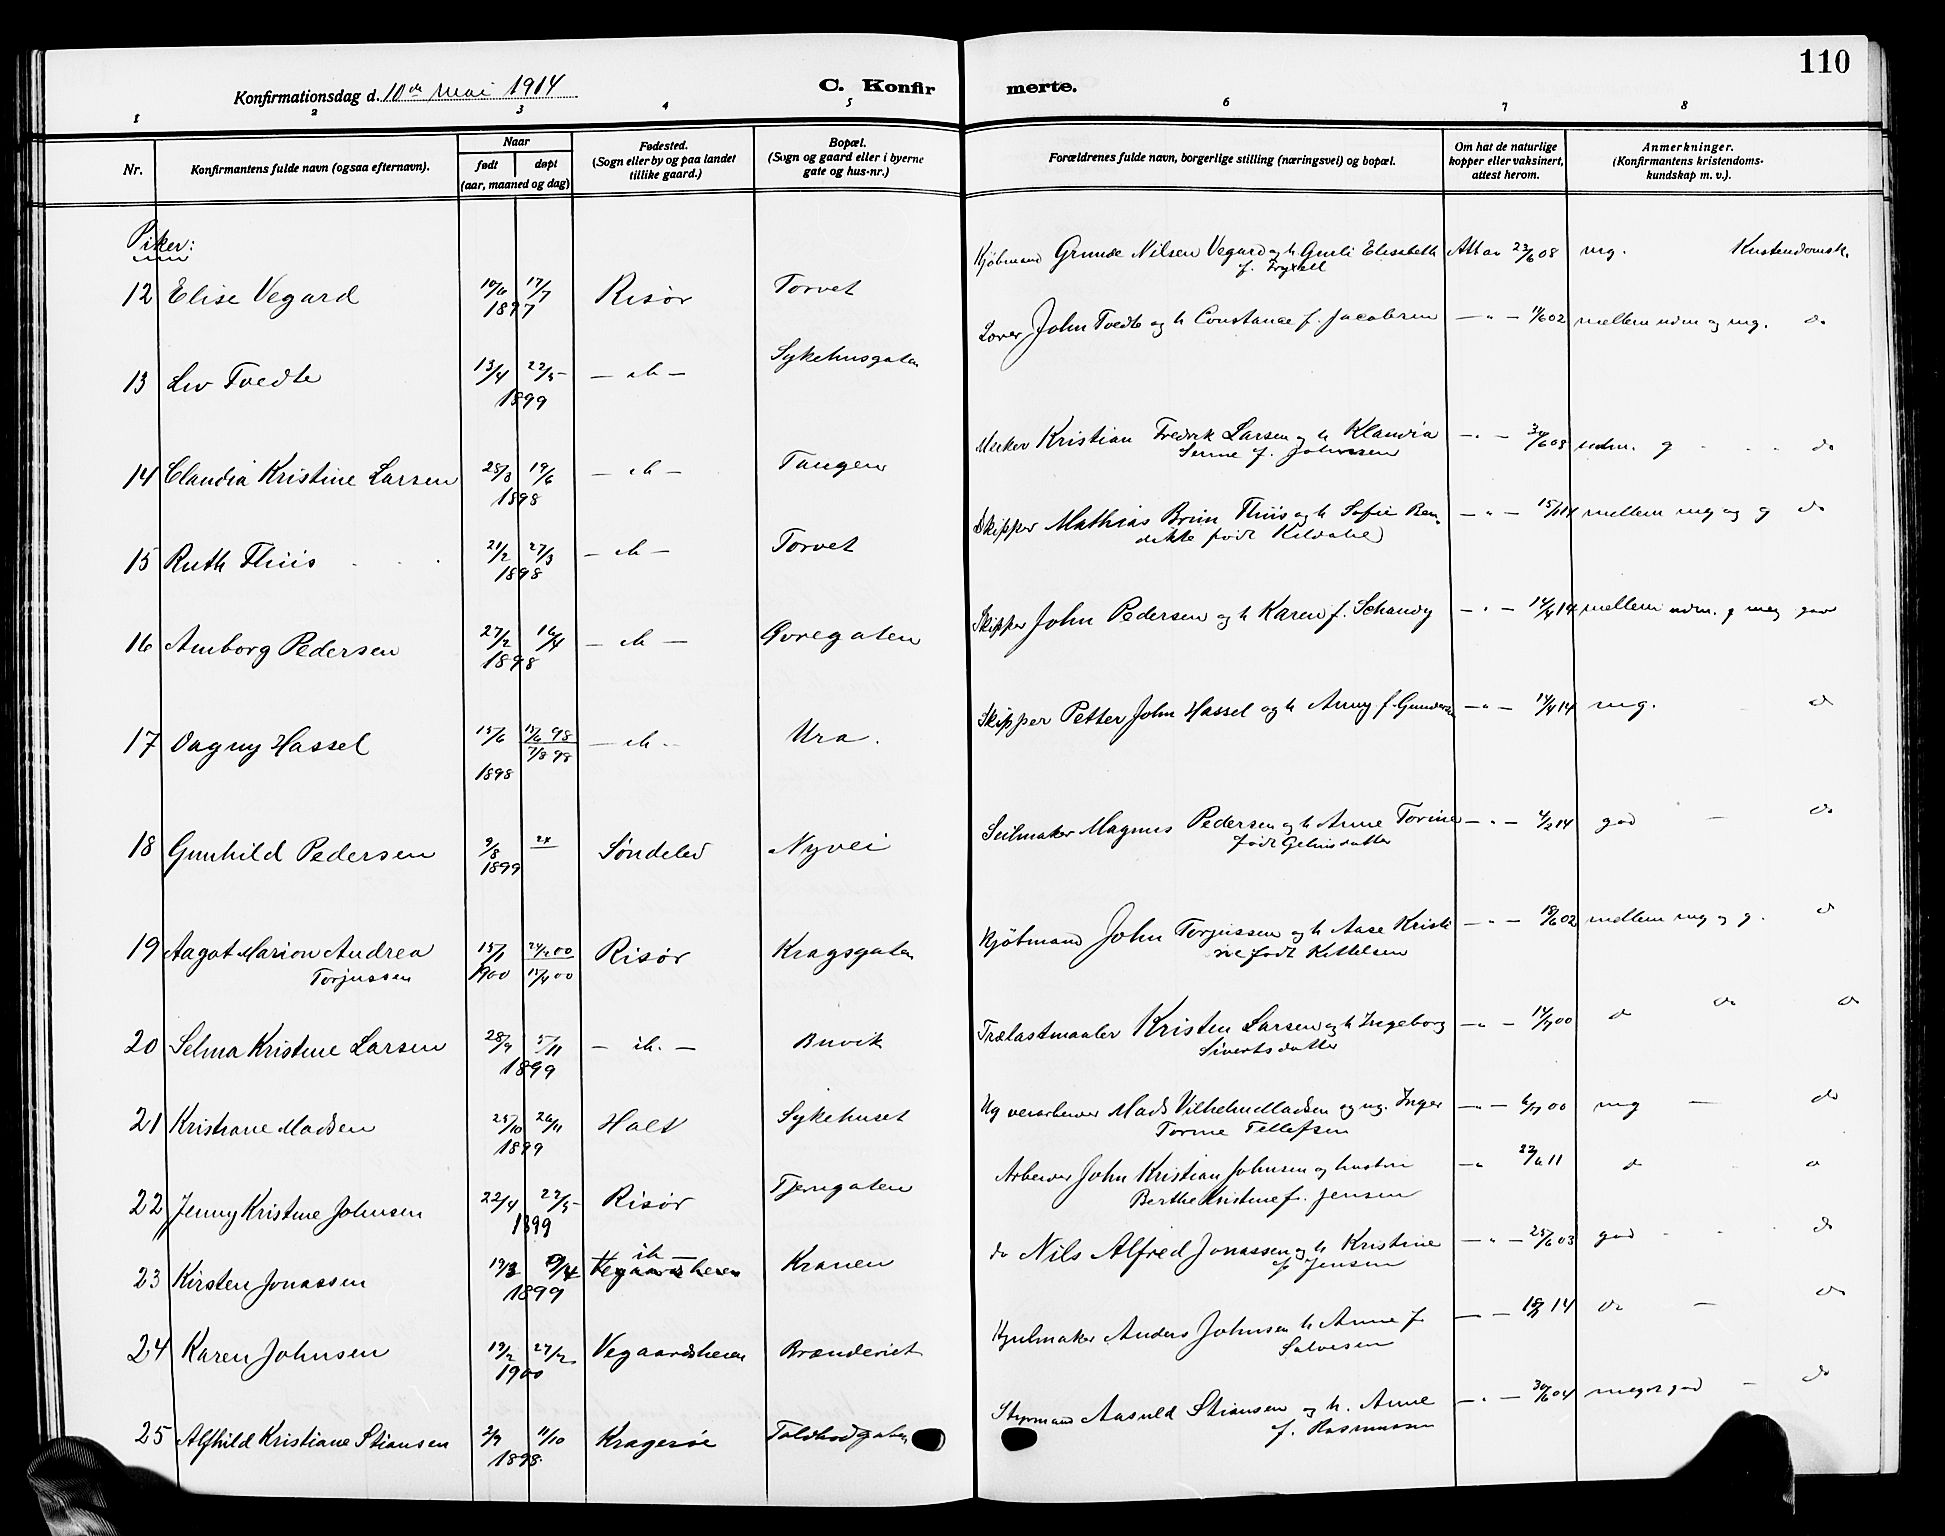 110
Konfirmationsdag d. 10de mai 1914
C. Konfir
merte.
1 2 3 4 5 6 7 8
Nr.
Konfirmantens fulde navn (ogsaa efternavn).
Naar
født døpt
(aar, maaned og dag)
Fødested.
(Sogn eller by og paa landet
tillike gaard.)
Bopæl.
(Sogn og gaard eller i byerne
gate og hus-nr.)
Forældrenes fulde navn, borgerlige stilling (næringsvei) og bopæl.
Om hat de naturlige
kopper eller vaksinert,
attest herom.
Anmerkninger.
(Konfirmantens kristendoms-
kundskap m. v.).
Piker:
Kjøbmand Grunde Nilsen Vegard og h Gurli Elisabeth Att av 23/6 08 mg. Kristendomsk.
12 Elise Vegard 10/6 17/7 Risør Torvet
1897
John Tvedte og h Constance f. Jacobsen 02 mellem udm og mg. do
13 Liv Tvedte 13/4 22/5 Sykehusgaten
1899
Kristian Fredrik Larsen og h Klaudia udm. g do
f. Johnsen
14 Claudia Kristine Larsen 28/3 19/6 Tangen
1898
Skipper Mathias Brun Thiis og h Sofie Ben- mellem mg og g do
dikte født Kildahl
15 Ruth Thiis 21/2 27/3 Torvet
1898
Skipper John Pedersen og h Karen f. Schandy 14/4 14 mellem udm. g meg god
16 Amborg Pedersen 27/2 16/4 Øvregaten
1898
Skipper Petter John Hassel og h Anny f. Gundersen 14/4 14 mg. do
17 Dagny Hassel 15/6 98 Ura.
7/8 98
1898
Seilmaker Magnus Pedersen og h Anne Torine 14 god do
født
18 Gunhild Pedersen 9/8 Søndeled Nyvei
1899
Kjøbmand John Torjussen og h Aase Kristi 18/6 02 mellem mg og g. do
ne født Kittelsen
19 Aagot Marion Andrea 15/1 Risør Kragsgaten
Torjussen 1900
Trælastmaaler Kristen Larsen og h Ingeborg 00 do do do
Sivertsdatter
20 Selma Kristine Larsen 28/9 5/11 Buvik
1899
Ug verarbeider Mads Vilhelm Madsen og ug. Inger 00 mg do
Torine Tellefsen
21 Kristiane Madsen 25/10 26/11 Holt Sykehuset
1899
Arbeider John Kristian Johnsen og hustru 11 do do
Berthe Kristine f. Jensen
22 Jenny Kristine Johnsen 22/4 27/5 Risør Tjerngaten
1899
do Nils Alfred Jonassen og h Kristine 25/6 03 god do
f. Jensen
23 Kirsten Jonassen Vegaardsheien Kranen
1899
Hjulmaker Anders Johnsen h Anne f 14 do do
Salvesen
24 Karen Johnsen 19/2 27/2 Vegaardsheien Brænderiet
1900
Styrmand Aasuld Stiansen og h. Anne 30/6 04 meget god do
f. Rasmussen
25 Alfhild Kristiane Stiansen 2/9 11/10 Kragerøe Toldbodgaten
1898